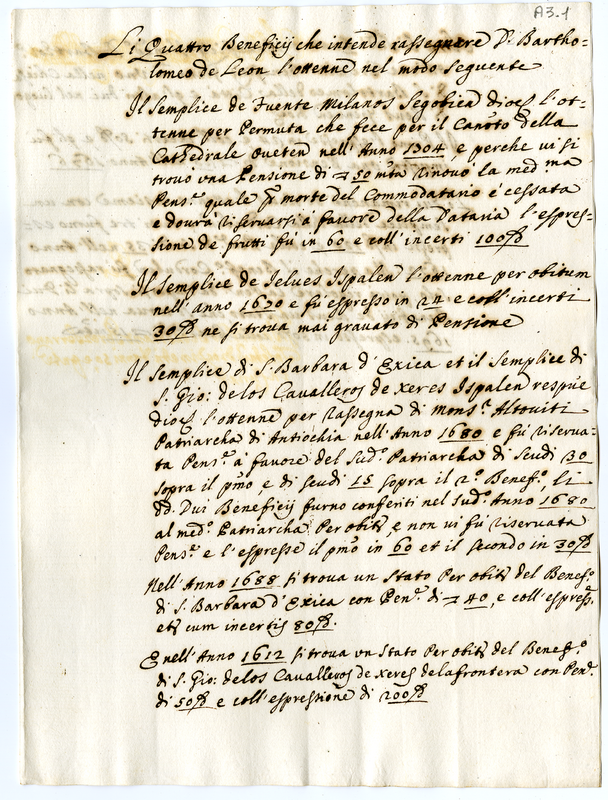 A3.1
Li Quattro Beneficij che intende rassegnare D. Bartho=
lomeo de Leon l'ottenne nel modo seguente
Il semplice de Fuente Milanos Segobien dioc. l'ot-
tenne per Permuta che fece per il Canoto della
Cathedrale Oveten nell'Anno 1304 e perche vi si
trovò una Pensione di 50 mta rinovò la med.ma
Pens.e quale morte del Commodatario è cessata
e dovrà riservarsi à favore della Dataria l'espres=
sione de frutti fù in 60 e coll'incerti 100
Il semplice de Jelves Ispalen l'ottenne per obitum
nell'anno 1670 e fù espresso in 24 e coll'incerti
30 ne si trova mai gravato di Pensione
Il semplice di S. Barbara d'Exica et il semplice di
S. Gio: de los Cavalleros de Xeres Ispalen respue
dioc. l'ottenne per rassegna di mons.r Altoviti
Patriarcha di Antiochia nell'Anno 1680 e fù riserva-
ta Pens.e à favore del sud.o Patriarcha di scudi 30
sopra il p̃mo, e di scudi 15 sopra il 2.o Benef.o, li
dd. Dui Beneficij furno conferiti nel sud.o Anno 1680
al med.o Patriarcha Per obit, e non vi fù riservata
Pens.e e l'espresse il p̃mo in 60 et il secondo in 30
Nell'Anno 1688 si trova un stato Per obit del Benef.o
di S. Barbara d'Exica con Pen.e di 40, e coll'espress.
etc cum incertis 80.
E nell'Anno 1612 si trova un stato Per obit del Benef.o
di S. Gio: de los Cavalleros de Xeres dela frontera con Pen.e
di 50 e coll'espressione di 200